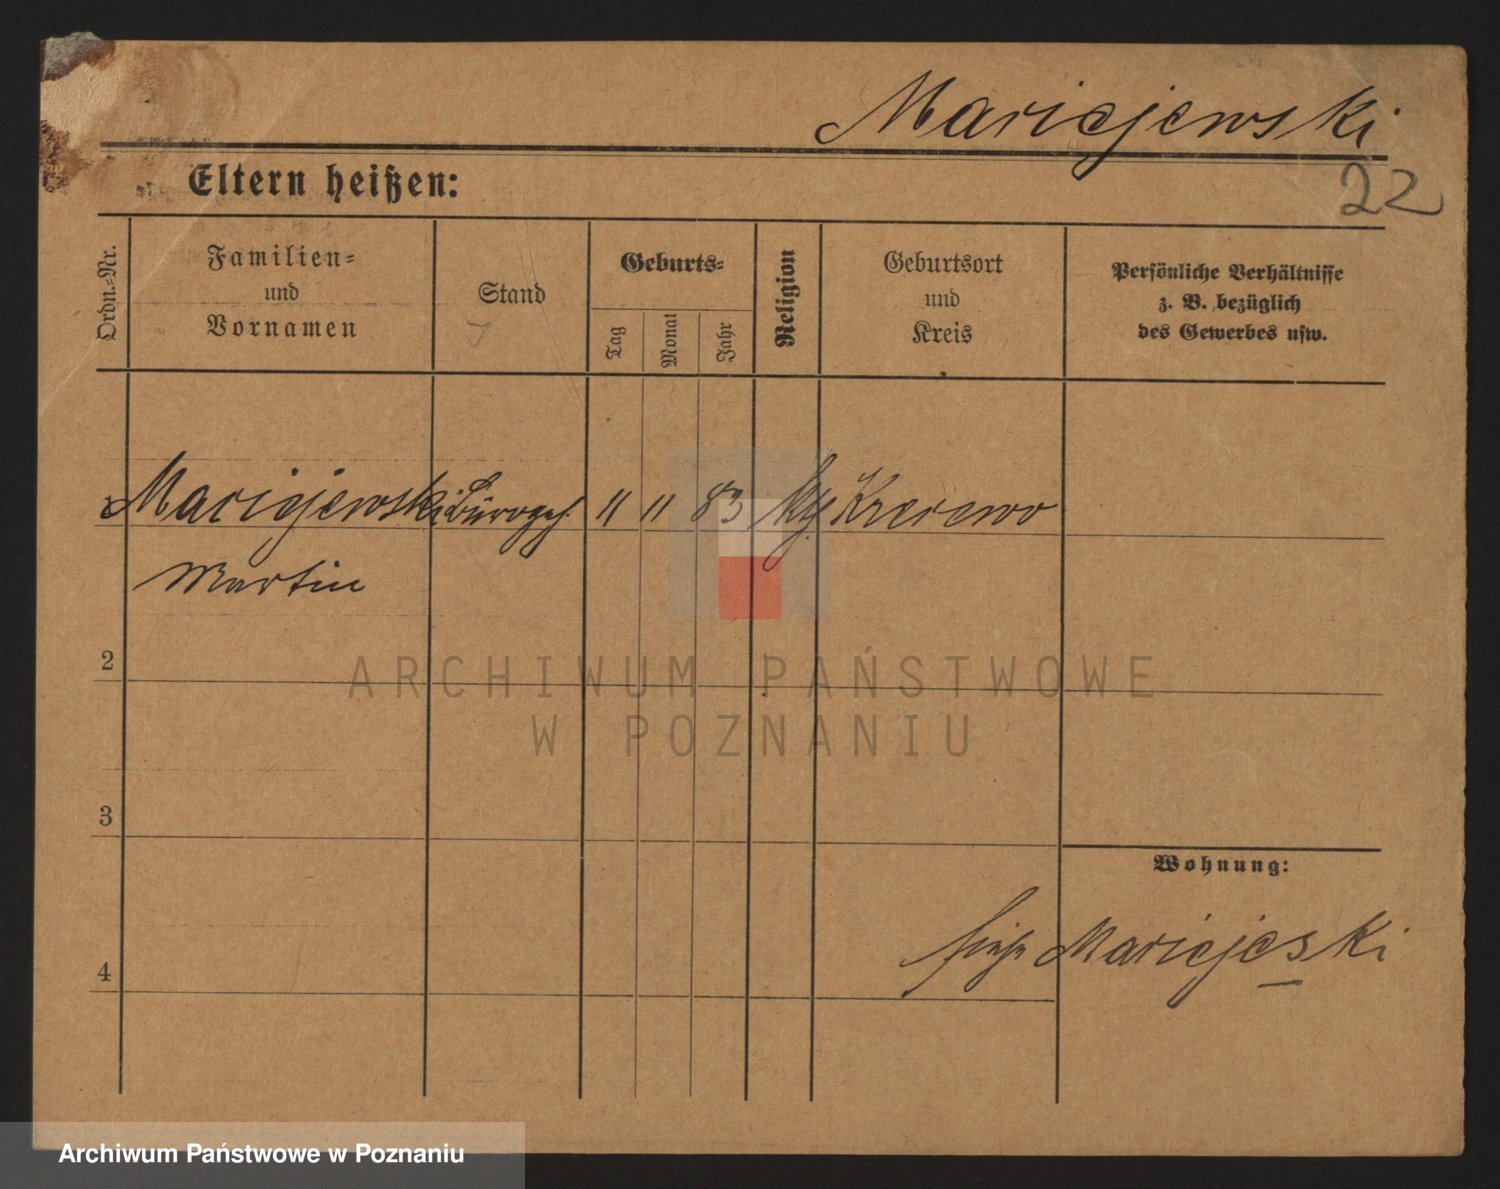 Maricjewski
22
Eltern heißen:
Ordn.=Nr.
Familien=
und
Vornamen
Stand
Geburts=
Tag
Monat
Jahr
Religion
Geburtsort
und
Kreis
Persönliche Verhältnisse
z. B. bezüglich
des Gewerbes usw.
Maricjewski Bürogeh. 11 11 83 Krerewo
Martin
2
3
4
Wohnung:
siehe Maricjeski
ARCHIWUM PAŃSTWOWE
W POZNANIU
Archiwum Państwowe w Poznaniu